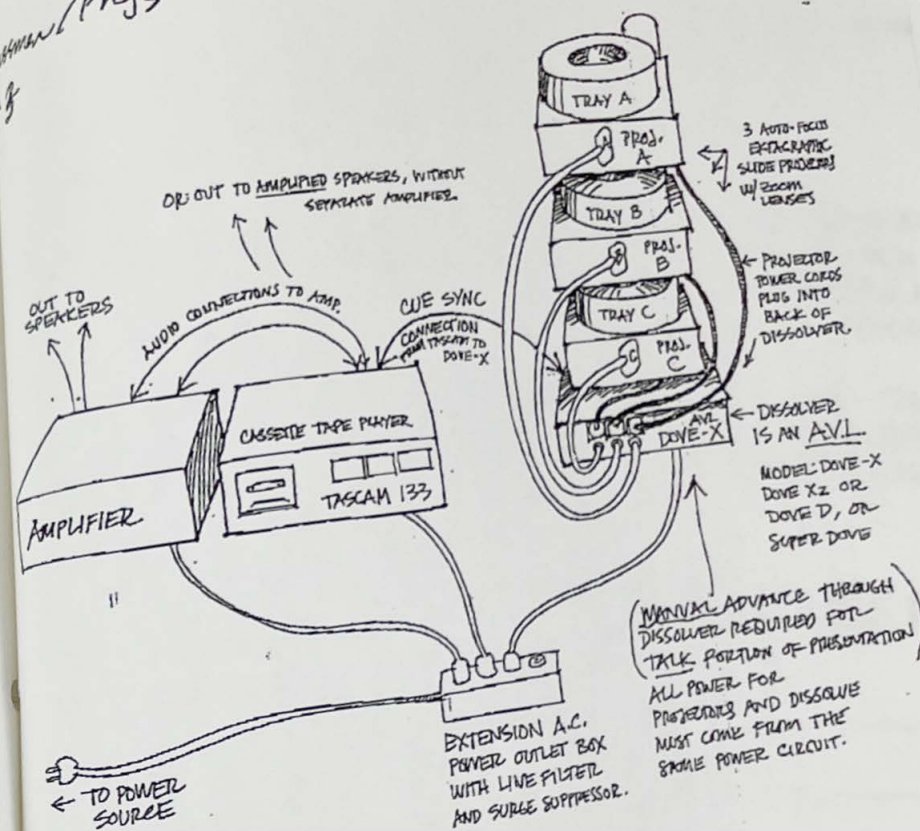 TRAY A
PROJ.
A
3 AUTO-FOCUS
EKTAGRAPHIC
SLIDE PROJECTORS
W/ZOOM
LENSES
OR: OUT TO AMPLIFIED SPEAKERS, WITHOUT
SEPARATE AMPLIFIER.
TRAY B
PROJ.
B
PROJECTOR
POWER CORDS
PLUG INTO
BACK OF
DISSOLVER.
OUT TO
SPEAKERS
AUDIO CONNECTIONS TO AMP.
CUE SYNC
CONNECTION
FROM TASCAM TO
DOVE-X
TRAY C
C
PROJ.
C
AVL
DOVE-X
DISSOLVER
IS AN A.V.L.
MODEL: DOVE-X
DOVE X2 OR
DOVE D, OR
SUPER DOVE
CASSETTE TAPE PLAYER
TASCAM 133
AMPLIFIER
(MANUAL ADVANCE THROUGH
DISSOLVER REQUIRED FOR
TALK PORTION OF PRESENTATION)
ALL POWER FOR
PROJECTORS AND DISSOLVE
MUST COME FROM THE
SAME POWER CIRCUIT.
EXTENSION A.C.
POWER OUTLET BOX
WITH LINE FILTER
AND SURGE SUPPRESSOR.
TO POWER
SOURCE